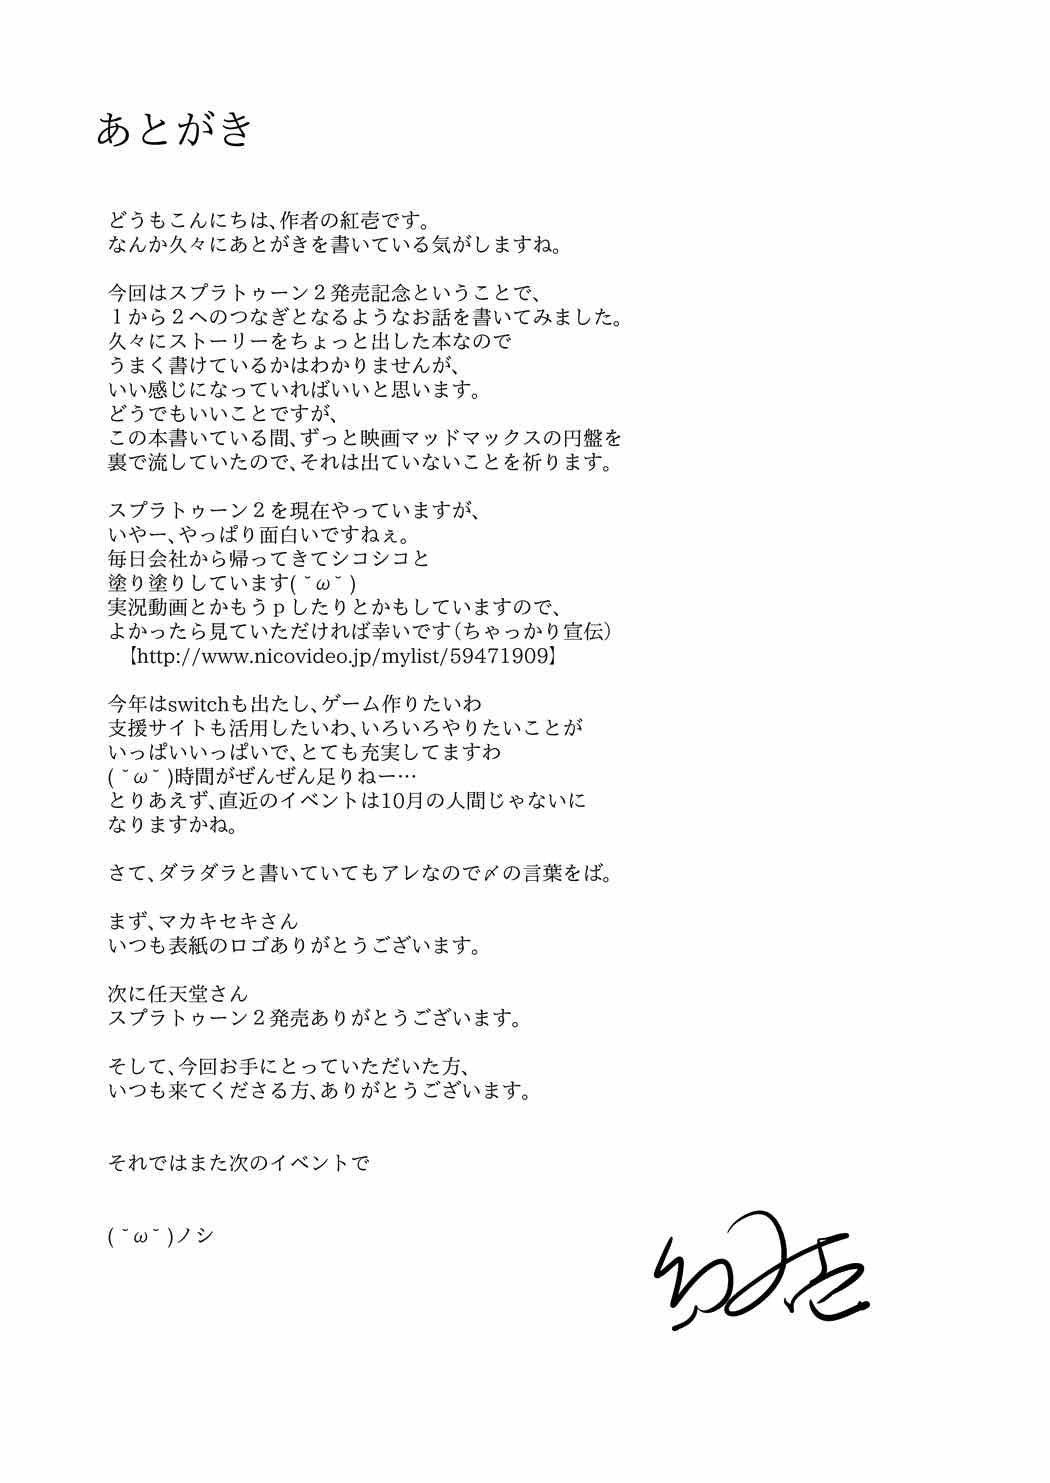 あとがき
どうもこんにちは、作者の紅壱です。
なんか久々にあとがきを書いている気がしますね。
今回はスプラトゥーン２発売記念ということで、
１から２へのつなぎとなるようなお話を書いてみました。
久々にストーリーをちょっと出した本なので
うまく書けているかはわかりませんが、
いい感じになっていればいいと思います。
どうでもいいことですが、
この本書いている間、ずっと映画マッドマックスの円盤を
裏で流していたので、それは出ていないことを祈ります。
スプラトゥーン２を現在やっていますが、
いやー、やっぱり面白いですねぇ。
毎日会社から帰ってきてシコシコと
塗り塗りしています( ˘ω˘ )
実況動画とかもうｐしたりとかもしていますので、
よかったら見ていただければ幸いです（ちゃっかり宣伝）
【http://www.nicovideo.jp/mylist/59471909】
今年はswitchも出たし、ゲーム作りたいわ
支援サイトも活用したいわ、いろいろやりたいことが
いっぱいいっぱいで、とても充実してますわ
( ˘ω˘ )時間がぜんぜん足りねー…
とりあえず、直近のイベントは10月の人間じゃないに
なりますかね。
さて、ダラダラと書いていてもアレなので〆の言葉をば。
まず、マカキセキさん
いつも表紙のロゴありがとうございます。
次に任天堂さん
スプラトゥーン２発売ありがとうございます。
そして、今回お手にとっていただいた方、
いつも来てくださる方、ありがとうございます。
それではまた次のイベントで
( ˘ω˘ )ノシ
紅壱